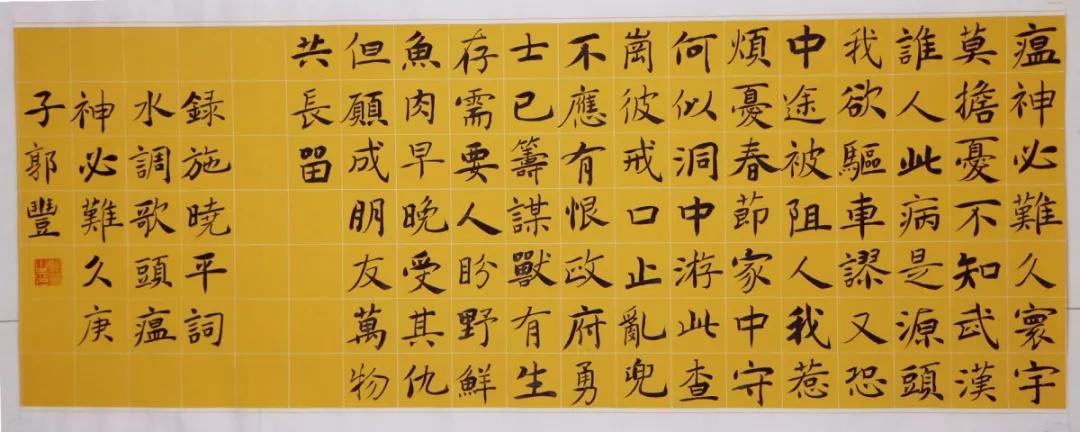 瘟神必難久寰宇
莫擔憂不知武漢
誰人此病是源頭
我欲驅車謬又恐
中途被阻人我惹
煩憂春節家中守
何似洞中游此查
崗彼戒口止亂兜
不應有恨政府勇
士已籌謀獸有生
存需要人盼野鮮
魚肉早晚受其仇
但願成朋友萬物
共長留
録施曉平詞
水調歌頭瘟
神必難久庚
子郭豐